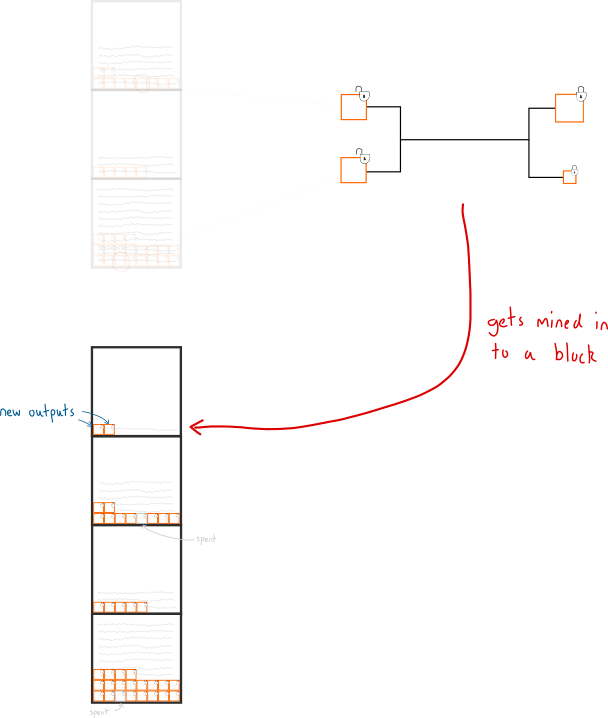 gets mined in
to a block
new outputs
spent
spent